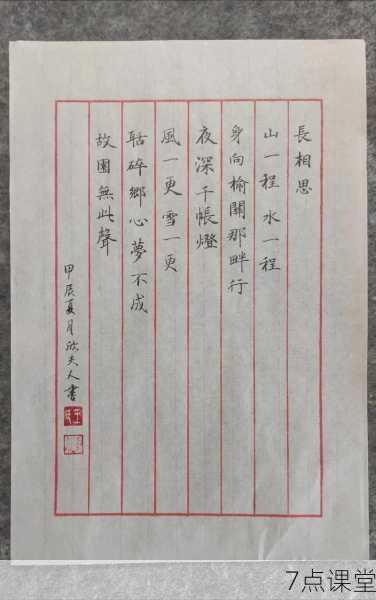 長相思
山一程 水一程
身向榆關那畔行
夜深千帳燈
風一更 雪一更
聒碎鄉心夢不成
故園無此聲
甲辰夏月欣夫人書
7点课堂